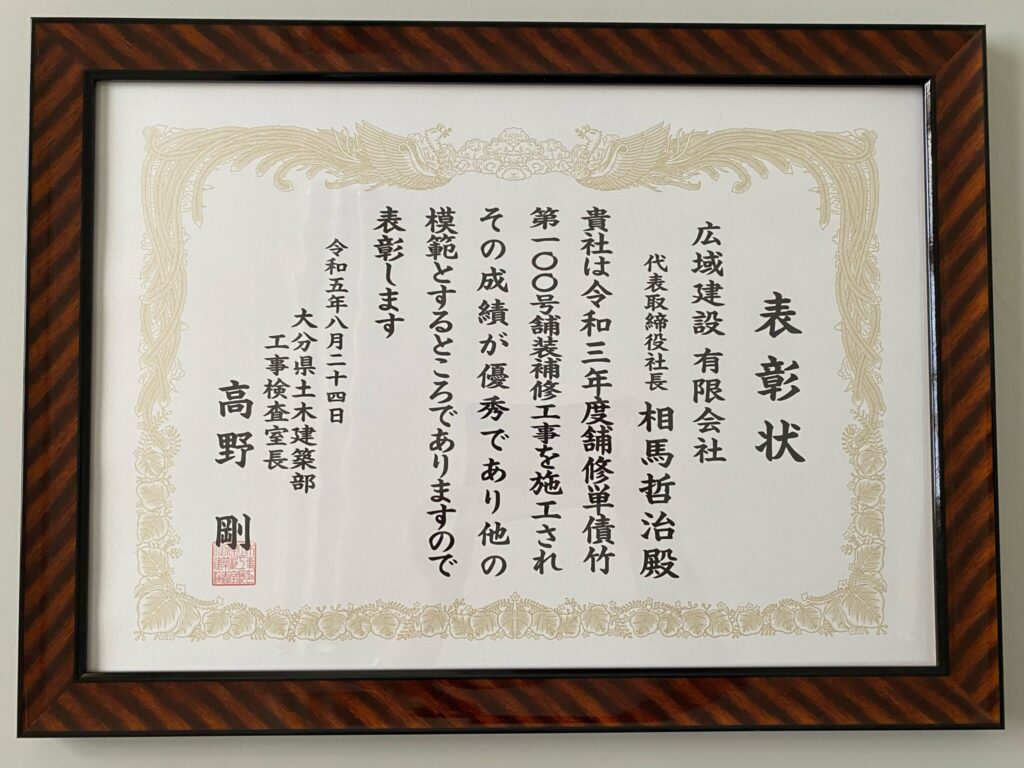 表彰状
広域建設 有限会社
代表取締役社長 相馬哲治殿
貴社は令和三年度舗修単債竹
第一〇〇号舗装補修工事を施工され
その成績が優秀であり他の
模範とするところでありますので
表彰します
令和五年八月二十四日
大分県土木建築部
工事検査室長
高野 剛